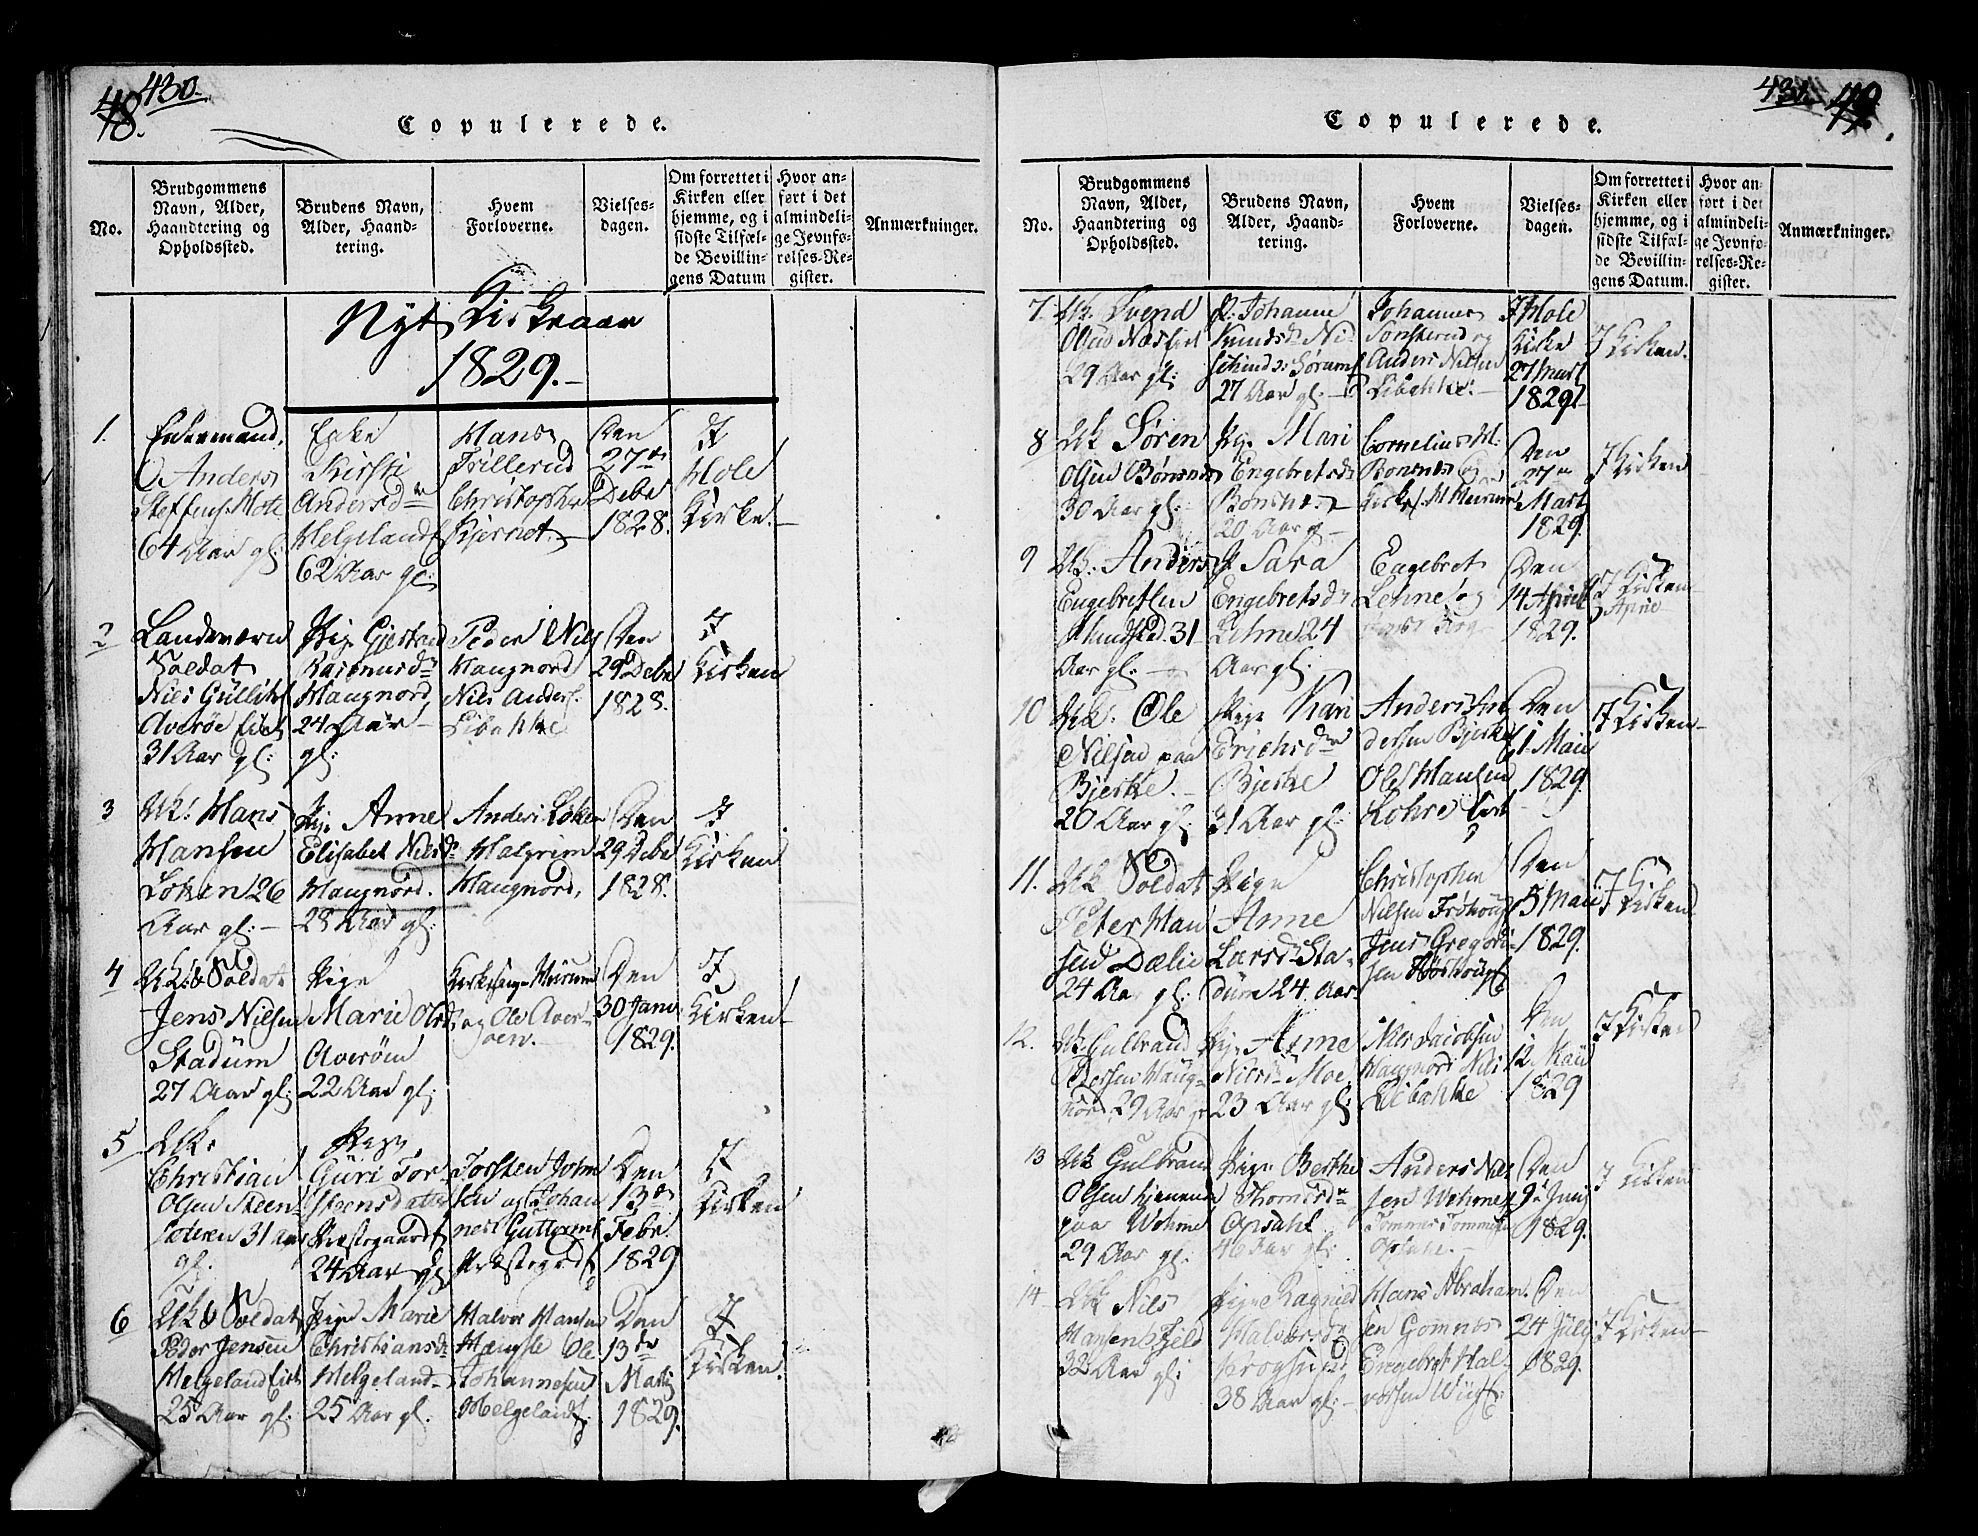 48. 430.
Copulerede.
No.
Brudgommens Navn, Alder, Haandtering og Opholdssted.
Brudens Navn, Alder, Haandtering.
Hvem Forloverne.
Vielsesdagen.
Om forrettet i Kirken eller hjemme, og i sidste Tilfælde Bevillingens Datum
Hvor anført i det almindelige Jevnførelses-Register.
Anmærkninger.
Nyt Kirkeaar
1829.
1.
Enkemand,
Anders
64 Aar gl:
Enke
Kirsti
Andersd
Helgeland
62 Aar gl:
Hans
Trillerud
Christopher
Den
27de
Debr
1828.
I
Hole
Kirke.
2
Landeværn
Soldat
Nils
Averøe
31 Aar gl:
Pige Gjertrud
Rasmusd
Haugnord
24 Aar
gl:
Peder Nils
Haugnord
Nils Anders
Libakke
Den
29 Debr
1828.
I
Kirken
3
Uk: Hans
Hansen
Loken 26
Aar gl:
Pige Anne
Elisabet Nilsd
Haugnord.
28 Aar gl:
Anders Loken
Halgrim
Haugnord.
Den
29 Debr
1828.
I
Kirken
4
Uk: & Soldat
Jens Nilsen
Stadum
27 Aar gl:
Pige
Marie Olsd
Averøen
22 Aar gl:
og Ole Aver-
øen.
Den
30 Janu
1829.
I
Kirken
5
Uk:
Christian
Olsen Steen-
31 aar
gl.
Pige
Guri Tor-
steensdatter
Præstegaard
24 Aar gl
Torsten John
sen og Johan
nes Guttorms
Den
13de
Febr.
1829
I
Kirken
6
Uk & Soldat
Peder Jensen
Helgeland
25 Aar gl.
Pige Marie
Christiansd
Helgeland
25 Aar gl.
Halvor Hansen
Ole
Johannesen
Helgeland
Den
13de
Marti
1829.
I
Kirken.
431. 49.
Copulerede.
No.
Brudgommens Navn, Alder, Haandtering og Opholdssted.
Brudens Navn, Alder, Haandtering.
Hvem Forloverne.
Vielsesdagen.
Om forrettet i Kirken eller hjemme, og i sidste Tilfælde Bevillingens Datum.
Hvor anført i det almindelige Jevnførelses-Register.
Anmærkninger.
7.
Uk. Svend
Olsen
29 Aar gl:
P. Johanne
Knudsd
27 Aar gl.
Johannes
og
Anders Nilsen
Libakke.
I Hole
Kirke
27 Mart
1829
I Kirken.
8
Uk Søren
Olsen Bønsnes
30 Aar gl:
Pige Mari
Engebretsd
Bønsnes
20 Aar g
Cornelius
Bonsnes og
Den
27de
Mart
1829.
I Kirken
9
Uk. Anders
Engebretsen
31
Aar gl:
P Sara
Engebretsd
Lehne 24
Aar gl:
Engebret
Lehne og
Den
14 April
1829.
I Kirken
10
Uk. Ole
Nilsen paa
Bjerke.
20 Aar gl:
Pige Kari
Erichsd
Bjerke
31 Aar gl:
Anders An
dersen Bjerke
Ole Hansen
Den
1 Maii
1829.
I Kirken
11.
Uk Soldat
Peter Han
sen Dælie
24 Aar gl:
Pige
Anne
Larsd Sta-
dum 24 Aar
Christopher
Nilsen
Jens Gregori-
sen
Den
5 Maii
1829.
I Kirken.
12.
Uk. Gulbrand
29 Aar gl
Pige Anne
Nilsd Moe
23 Aar gl:
Nils Jacobsen
Haugnord Nils
Libakke
Den
12 Maii
1829
I Kirken
13
Uk Gulbran
Olsen
paa Wehme
29 Aar gl:
Pige Berthe
Thomasd
Opsahl
46 Aar gl:
Anders Niel
sen Wehme
Opsahl.
Den
9de Juni
1829.
I Kirken
14
Uk Nils
Hansen Fjeld
32 Aar gl:
Pige Ragnild
Halvorsd
38 Aar gl.
Hans Abraham
sen Gomnæs
Engebret Hal-
vorsen
Den
24 July
1829.
I Kirken